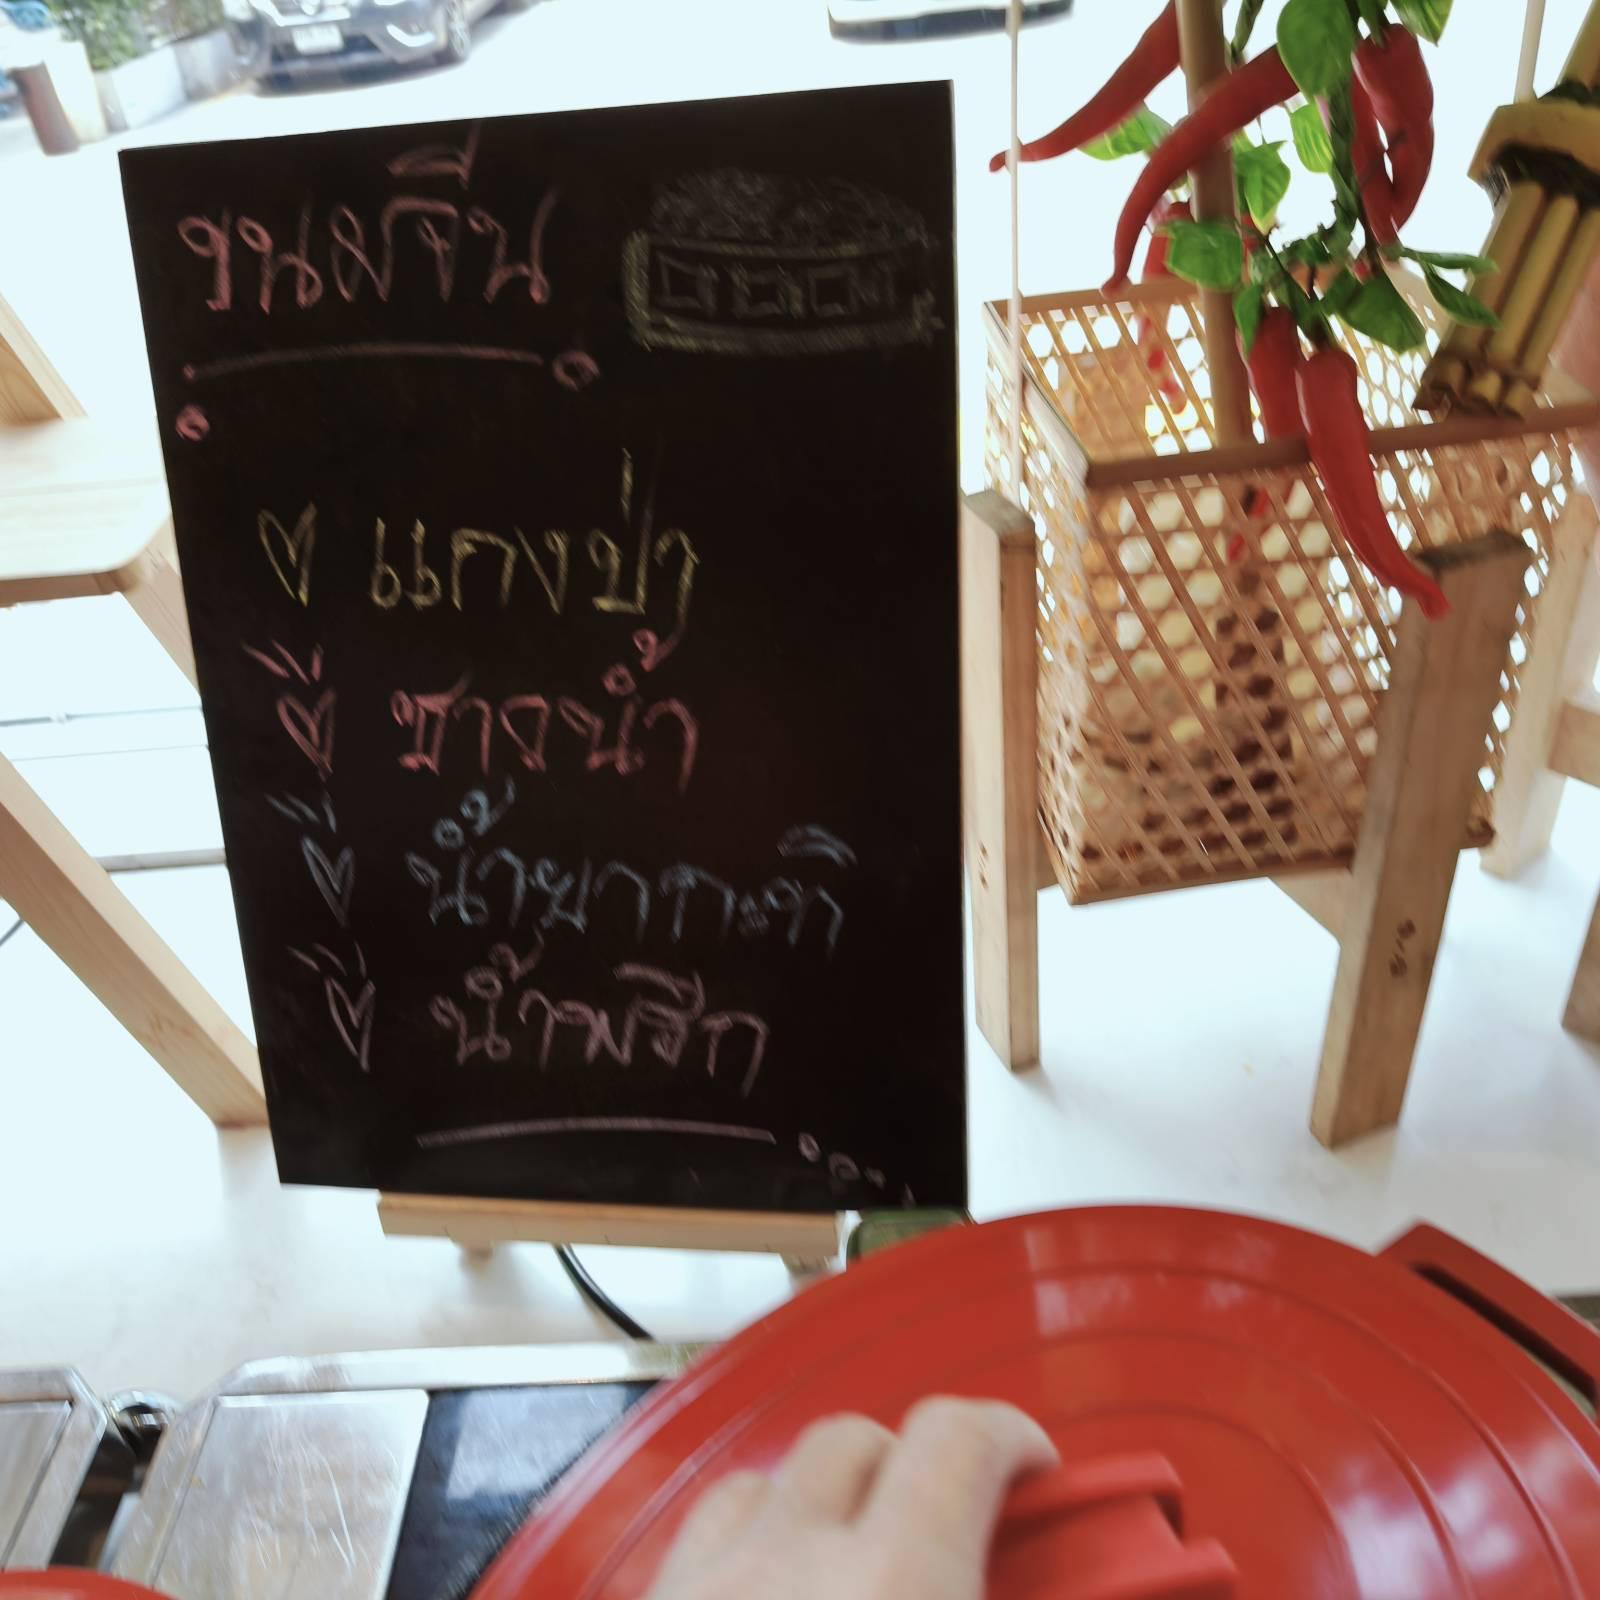 ขนมจีน
แกงป่า
ซาวน้ำ
น้ำยากะทิ
น้ำพริก